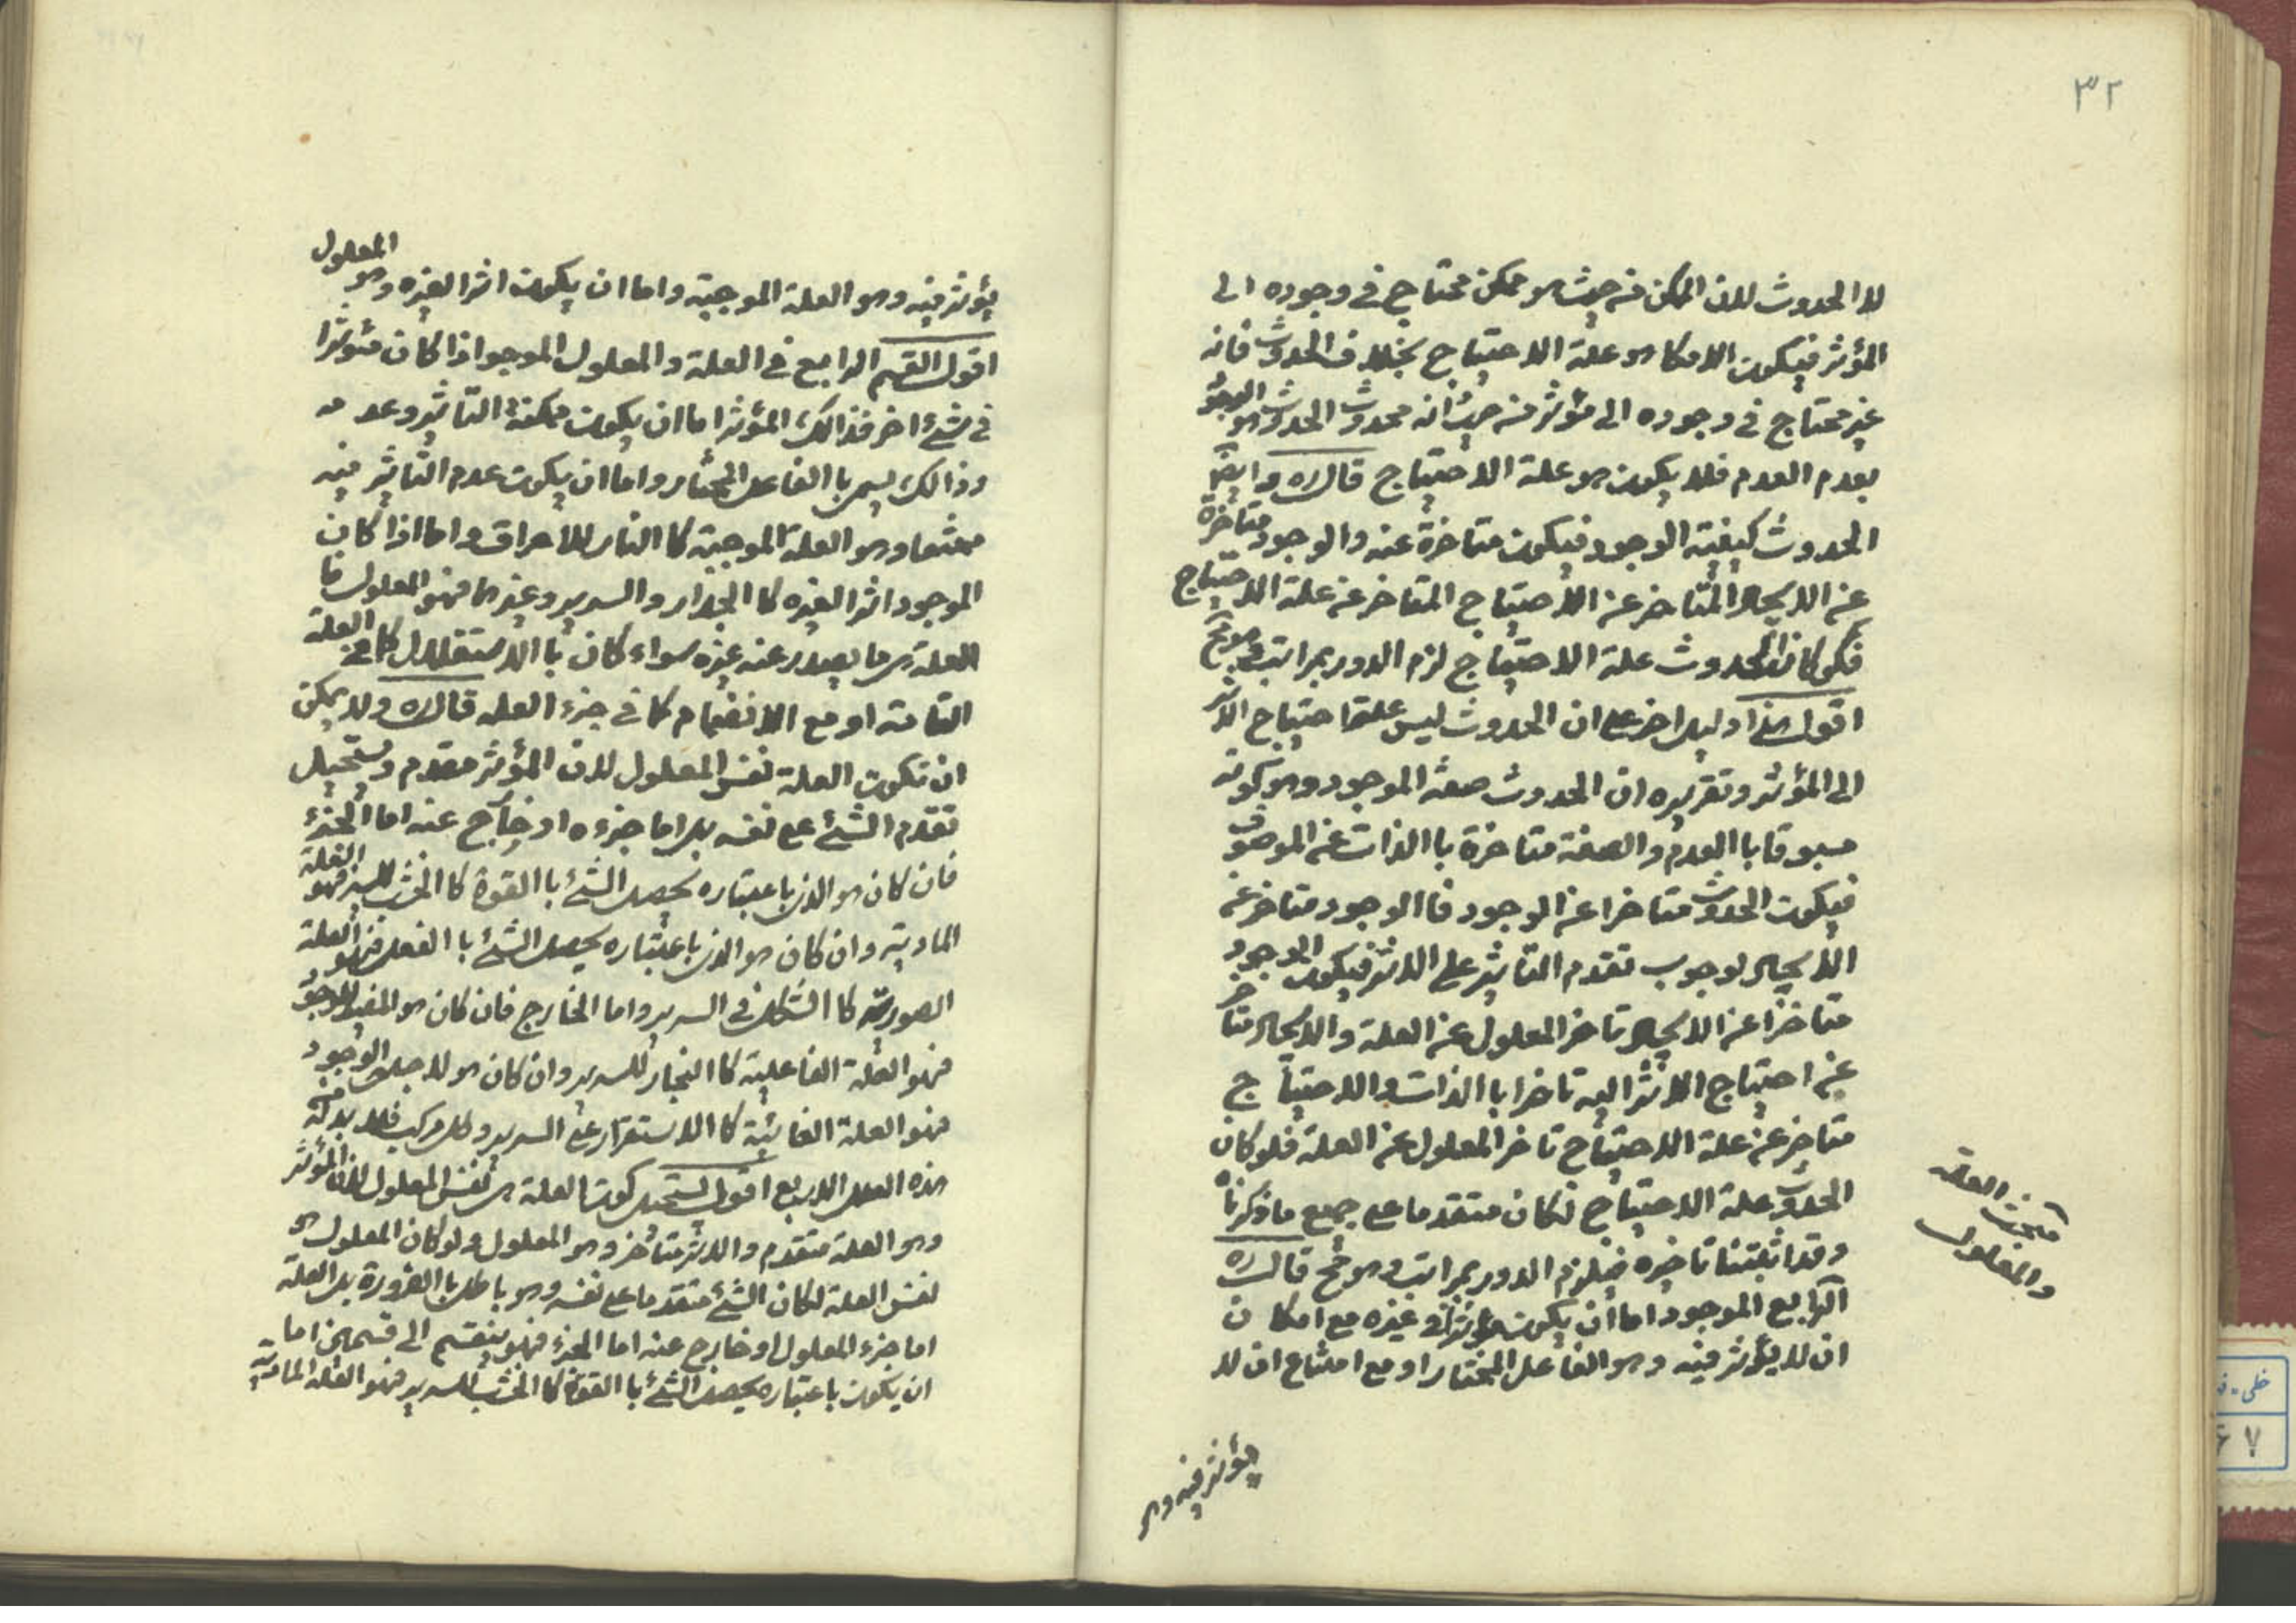 ٣٢
لا الحدوث لان الممكن من حيث هو ممكن محتاج في وجوده الى
المؤثر فيكون الامكان هو علة الاحتياج بخلاف الحدوث فانه
غير محتاج في وجوده الى مؤثر من حيث انه محدوث الحدوث هو الوجود
بعدم العدم فلا يكون هو علة الاحتياج قال ره وايضا
الحدوث كيفية الوجود فيكون متاخرة عنه والوجود متاخرة
عن الايجاد المتاخر عن الاحتياج المتاخر عن علة الاحتياج
فلو كان الحدوث علة الاحتياج لزم الدور بمراتب وهو مح
اقول هذا دليل اخر على ان الحدوث ليس علة احتياج الاثر
الى المؤثر وتقريره ان الحدوث صفة الموجود وهو كونه
مسبوقا باالعدم والصفة متاخرة باالذات عن الموصوف
فيكون الحدوث متاخرا عن الوجود فاالوجود متاخر عن
الايجاد لوجوب تقدم التاثير على الاثر فيكون الوجود
متاخرا عن الايجاد تاخر المعلول عن العلة والايجاد متاخر
عن احتياج الاثر اليه تاخرا باالذات والاحتياج
متاخر عن علة الاحتياج تاخر المعلول عن العلة فلو كان
الحدوث علة الاحتياج لكان متقدما على جميع ما ذكرناه
وقد اثبتنا تاخيره فيلزم الدور بمراتب وهو مح قال ره
الرابع الموجود اما ان يكون مؤثرا في غيره مع امكان
ان لا يؤثر فيه وهو الفاعل المختار او مع امتناع ان لا
يؤثر فيه وهو
مبحث العلة
والمعلول
يؤثر فيه وهو العلة الموجبة واما ان يكون اثرا لغيره وهو المعلول
اقول القسم الرابع في العلة والمعلول الموجو اذا كان مؤثرا
في شئ اخر فذالك المؤثر اما ان يكون ممكنة التاثير وعدمه
وذالك يسمى باالفاعل المختار واما ان يكون عدم التاثير فيه
ممتنعا وهو العلة الموجبة كاالنار للاحراق واما اذا كان
الموجود اثرا لغيره كاالجدار والسرير وغيرهما فهو المعلول فا
العلة هي ما يصدر عنه غيره سواء كان باالاستقلال كما في العلة
التامة او مع الانضمام كما في جزء العلة قال ره ولا يمكن
ان تكون العلة نفس المعلول لان المؤثر مقدم ويستحيل
تقدم الشئ على نفسه بل اما جزءه او خارج عنه اما الجزء
فان كان هو الذي باعتباره يحصل الشئ باالقوة كاالخشب للسرير فهو العلة
المادية وان كان هو الذي باعتباره يحصل الشئ باالفعل فهو العلة
الصورية كاالشكل في السرير واما الخارج فان كان هو المفيد للوجود
فهو العلة الفاعلية كاالنجار للسرير وان كان هو لاجله الوجود
فهو العلة الغائية كاالاستقرار على السرير وكل مركب فلا بد له من
هذه العلل الاربع اقول يستحيل كون العلة هي نفس المعلول لان المؤثر
وهو العلة متقدم والاثر متاخر وهو المعلول ولو كان المعلول هو
نفس العلة لكان الشئ متقدما على نفسه وهو باطل باالضرورة بل العلة
اما جزء المعلول او خارج عنه اما الجزء فهو ينقسم الى قسمين اما
ان يكون باعتباره يحصل الشئ باالقوة كاالخشب للسرير فهو العلة المادية